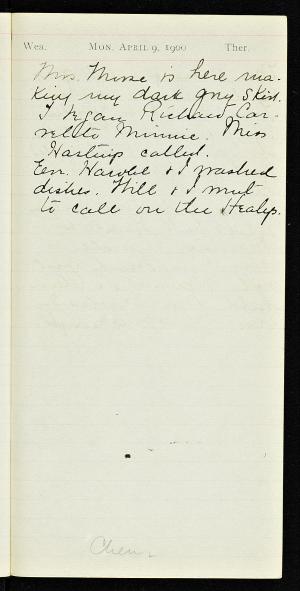 Wea. Mon. April 9, 1900 Ther.
Mrs. Morse is here ma-
king my dark grey skirt.
I began Richard Car-
vel to Minnie. Miss
Hastings called.
Eev. Hawble & I washed
dishes. Will & I went
to call on the Healys.
Chem.